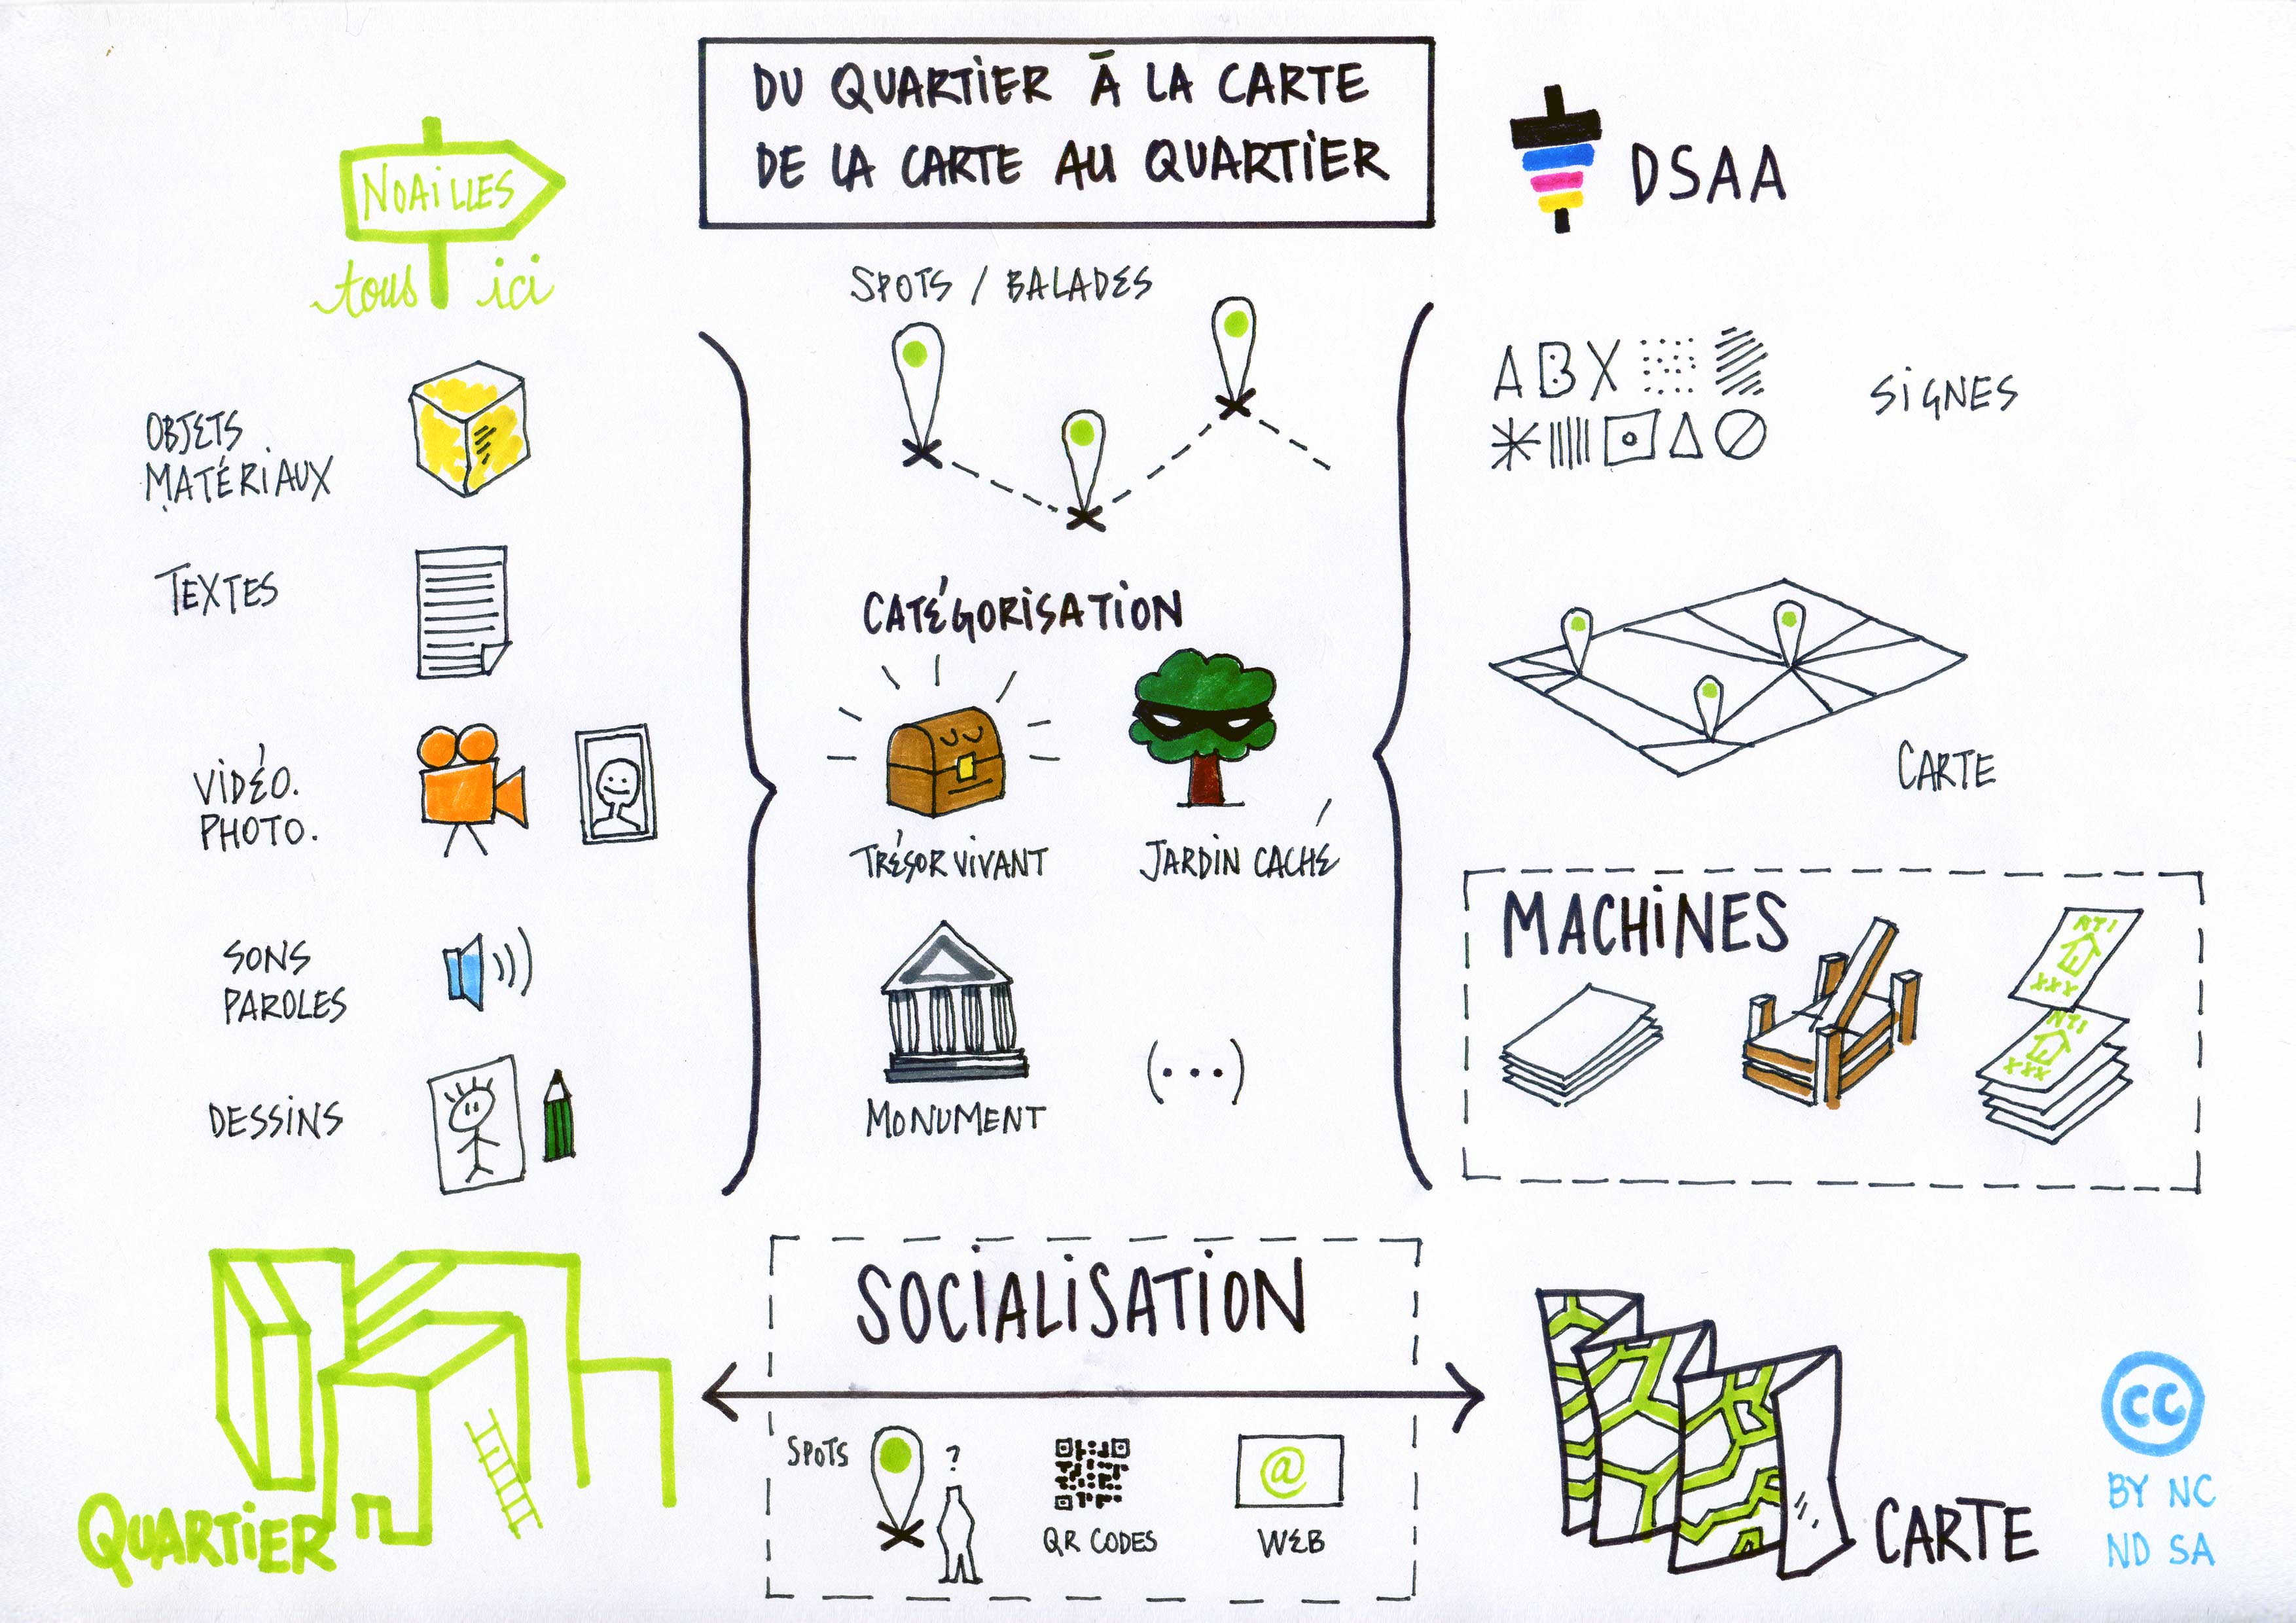 DU QUARTIER À LA CARTE
DE LA CARTE AU QUARTIER
NOAILLES
tous ici
DSAA
OBJETS
MATÉRIAUX
TEXTES
VIDÉO.
PHOTO.
SONS
PAROLES
DESSINS
QUARTIER
SPOTS / BALADES
CATÉGORISATION
TRÉSOR VIVANT
JARDIN CACHÉ
MONUMENT
(...)
SOCIALISATION
SPOTS
?
QR CODES
@
WEB
A B X
SIGNES
CARTE
MACHINES
XXX
XXX
CARTE
CC
BY NC
ND SA